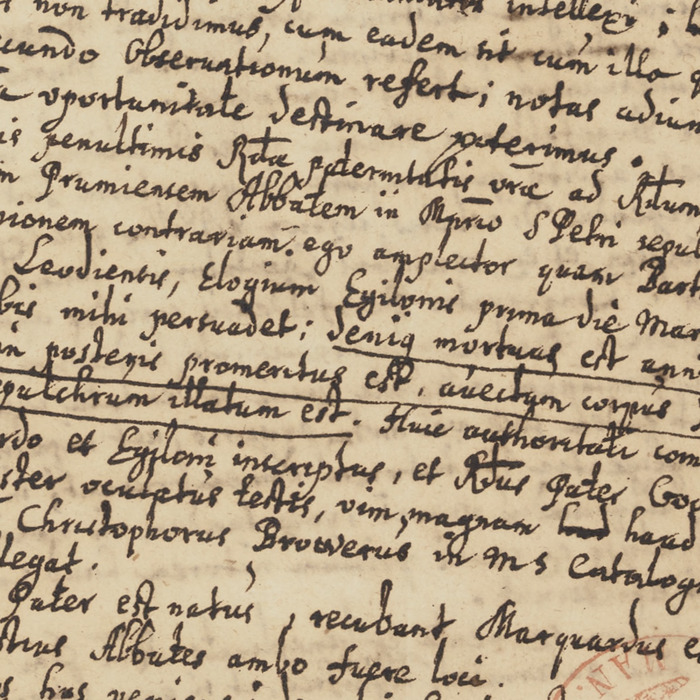 non tradidimus, cum eadem sit cum illa
Observationum refert; notas adiun
oportunitate destinare poterimus.
is penultimis Rdæ pternitatis vræ ad Rdum
Prumiensem Abbatem in Mprio S Petri sepul
nionem contrariam ego amplector quam Bart
Leodiensis, Elogium Egilonis prima die Mar
bis mihi persuadet; Deniq mortuus est ann
in posteris promeritus est, avectum corpus
epulchrum illatum est. Huic authoritati com
rdo et Egiloni inscriptus, et Rdus Pater God
ster oculatus testis, vim magnam haud
Christophorus Browerus in MS Catalog
legat.
Pater est natus, recubant Marquardus e
stius Abbates ambo fuere loci.